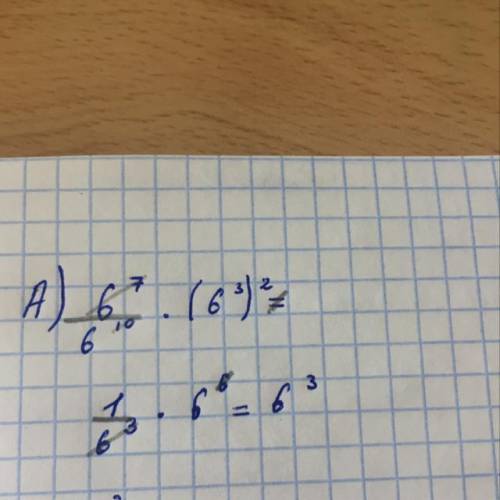 A) 6⁷/6¹⁰ · (6³)² =
1/6³ · 6⁶ = 6³